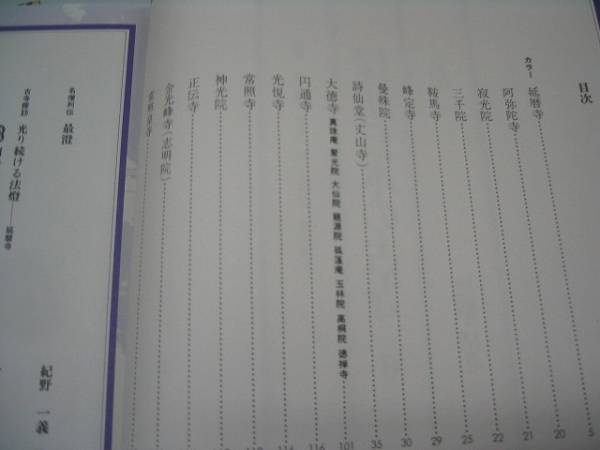 目次
カラー 延暦寺 5
阿弥陀寺 20
寂光院 21
三千院 22
鞍馬寺 25
峰定寺 29
曼殊院 30
詩仙堂(丈山寺) 35
大徳寺 真珠庵 聚光院 大仙院 龍源院 孤篷庵 玉林院 高桐院 徳禅寺 101
円通寺 116
光悦寺
常照寺
神光院
正伝寺
金光峰寺(志明院)
名僧列伝 最澄
紀野 一義
古寺巡訪 光り続ける法燈——延暦寺